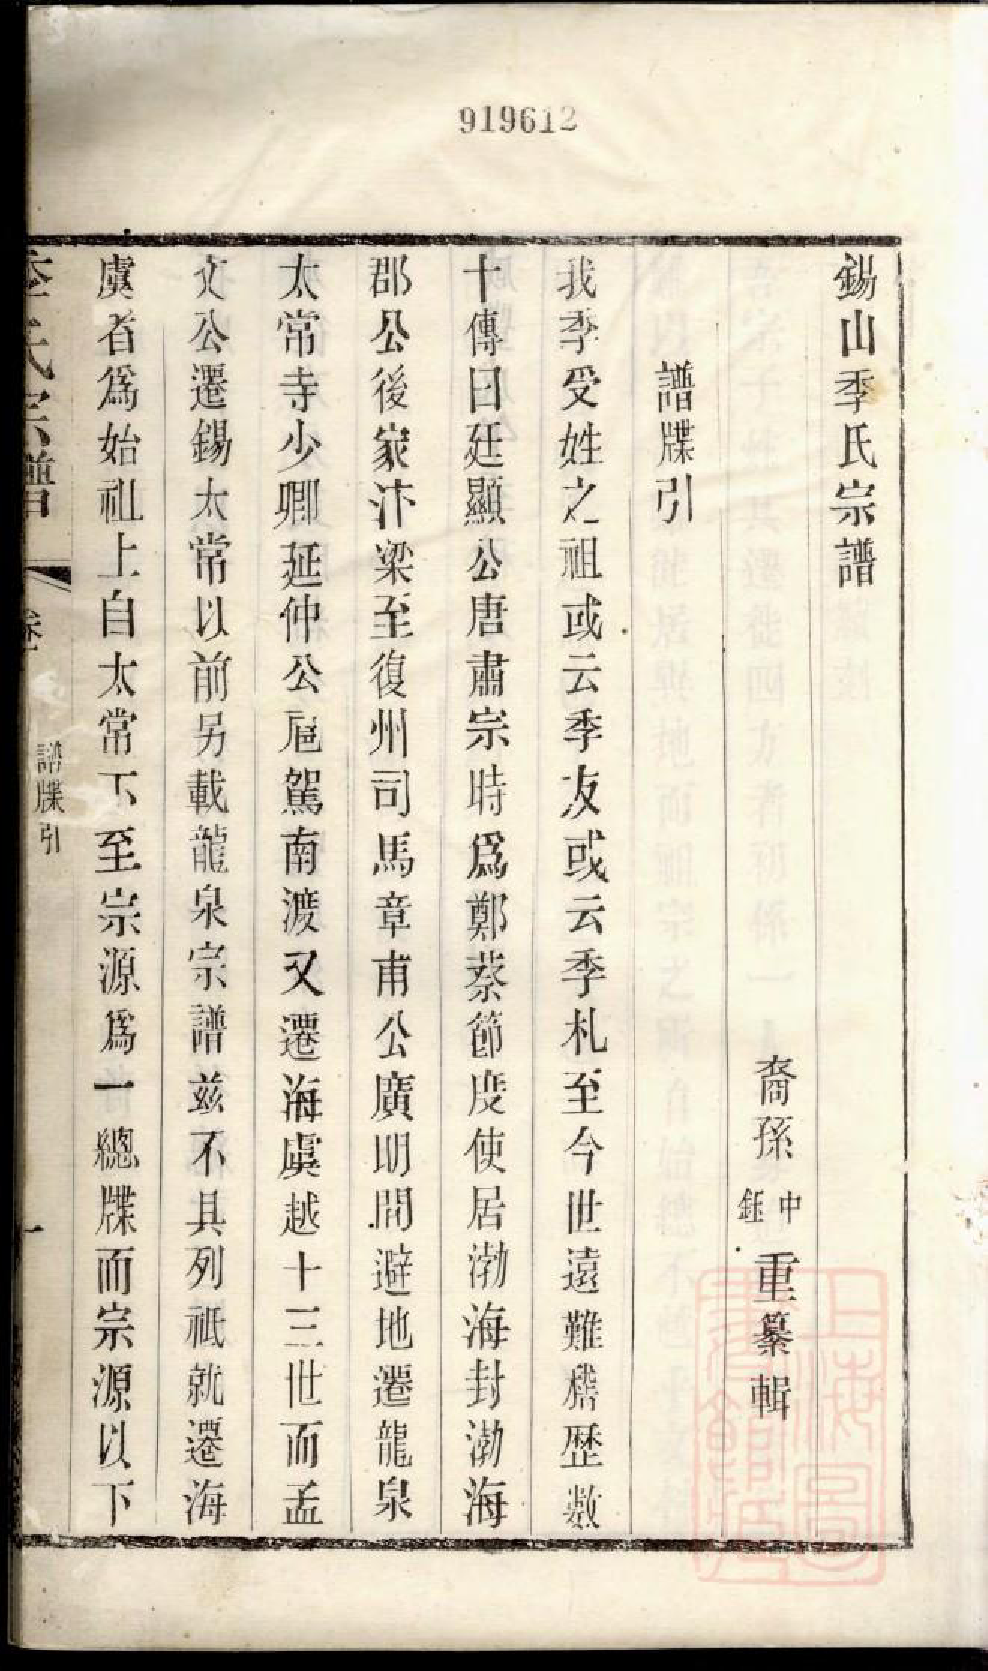 919612
錫山季氏宗譜
裔孫中鉅重纂輯
譜牒引
我季受姓之祖或云季友或云季札至今世遠難稽歷數
十傳曰廷顯公唐肅宗時爲鄭蔡節度使居渤海封渤海
郡公後家汴梁至復州司馬章甫公廣明間避地遷龍泉
太常寺少卿延仲公扈駕南渡又遷海虞越十三世而孟
文公遷錫太常以前另載龍泉宗譜茲不具列祇就遷海
虞者爲始祖上自太常下至宗源爲一總牒而宗源以下
季氏宗譜
卷
譜牒引
一
上海圖書館藏